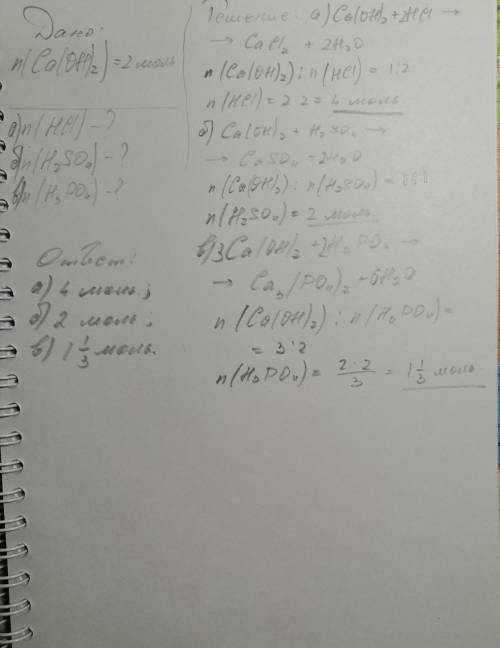 Дано:
n(Ca(OH)₂)=2 моль
а) n(HCl) - ?
б) n(H₂SO₄) - ?
в) n(H₃PO₄) - ?
Ответ:
а) 4 моль;
б) 2 моль;
в) 1 1/3 моль.
Решение: а) Ca(OH)₂+2HCl →
→ CaCl₂ + 2H₂O
n(Ca(OH)₂) : n(HCl) = 1:2
n(HCl) = 2·2 = 4 моль
б) Ca(OH)₂ + H₂SO₄ →
→ CaSO₄ + 2H₂O
n(Ca(OH)₂) : n(H₂SO₄) =
n(H₂SO₄) = 2 моль.
в) 3Ca(OH)₂ + 2H₃PO₄ →
→ Ca₃(PO₄)₂ + 6H₂O
n(Ca(OH)₂) : n(H₃PO₄) =
= 3:2
n(H₃PO₄) = 2·2/3 = 1 1/3 моль